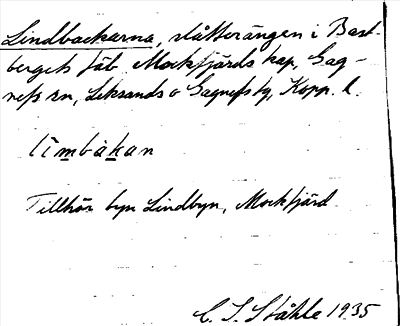 Lindbackarna, slåtterängen i Bast-
bergets fäb. Mockfjärds kap, Gag-
nefs sn, Leksands o Gagnefs tg, Kopp. l.
limbakan
Tillhör byn Lindbyn, Mockfjärd
C. I. Ståhle 1935